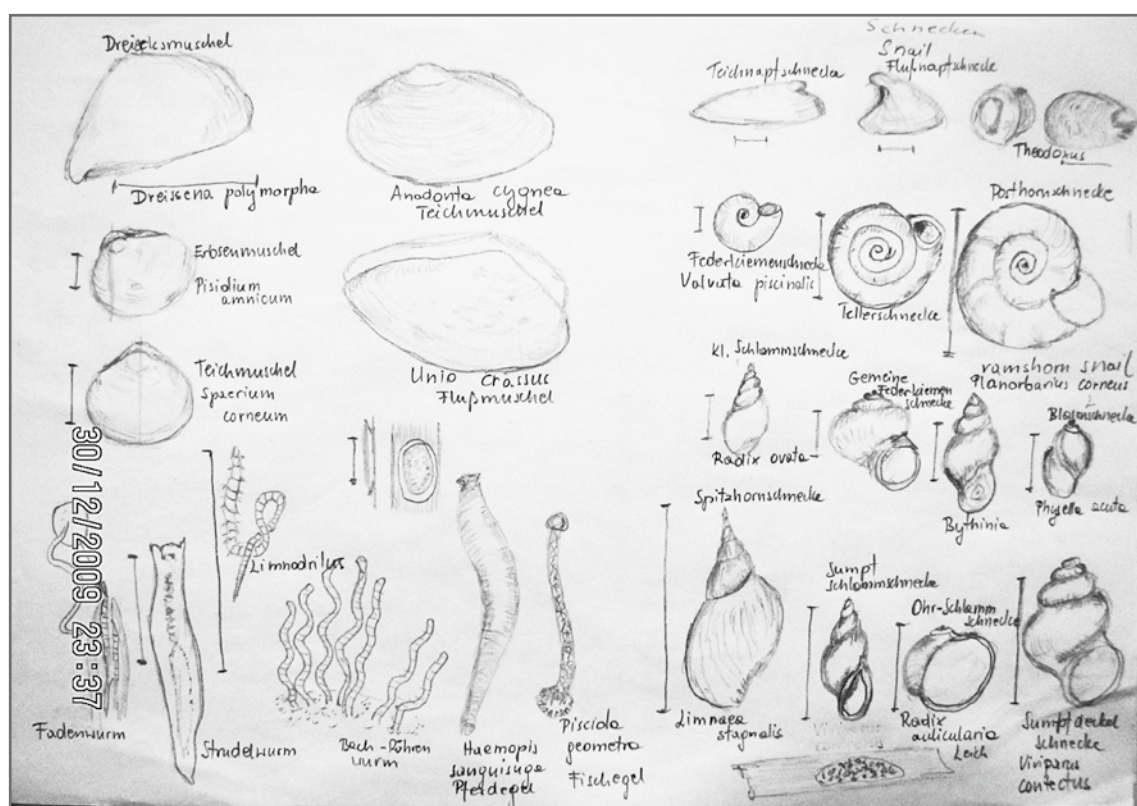 Dreiecksmuschel
Dreissena polymorpha
Anodonta cygnea
Teichmuschel
Erbsenmuschel
Pisidium
amnicum
Unio crassus
Flußmuschel
Teichmuschel
Spaerium
corneum
30/12/2009 23:37
Limnodrilus
Fadenwurm
Strudelwurm
Bach-Röhren
wurm
Haemopis
sanguisuga
Pferdegel
Pisciola
geometra
Fischegel
Schnecken
Snail
Teichnapfschnecke
Flußnapfschnecke
Theodoxus
Federkiemenschnecke
Valvata piscinalis
Tellerschnecke
Posthornschnecke
ramshorn snail
Planorbarius corneus
Kl. Schlammschnecke
Radix ovata
Gemeine
Federkiemen
schnecke
Bythinia
Blasenschnecke
Physella acuta
Spitzhornschnecke
Limnaea
stagnalis
Sumpf
schlammschnecke
Ohr-Schlamm
schnecke
Radix
auricularia
Leich
Sumpfdeckel
schnecke
Viviparus
contectus